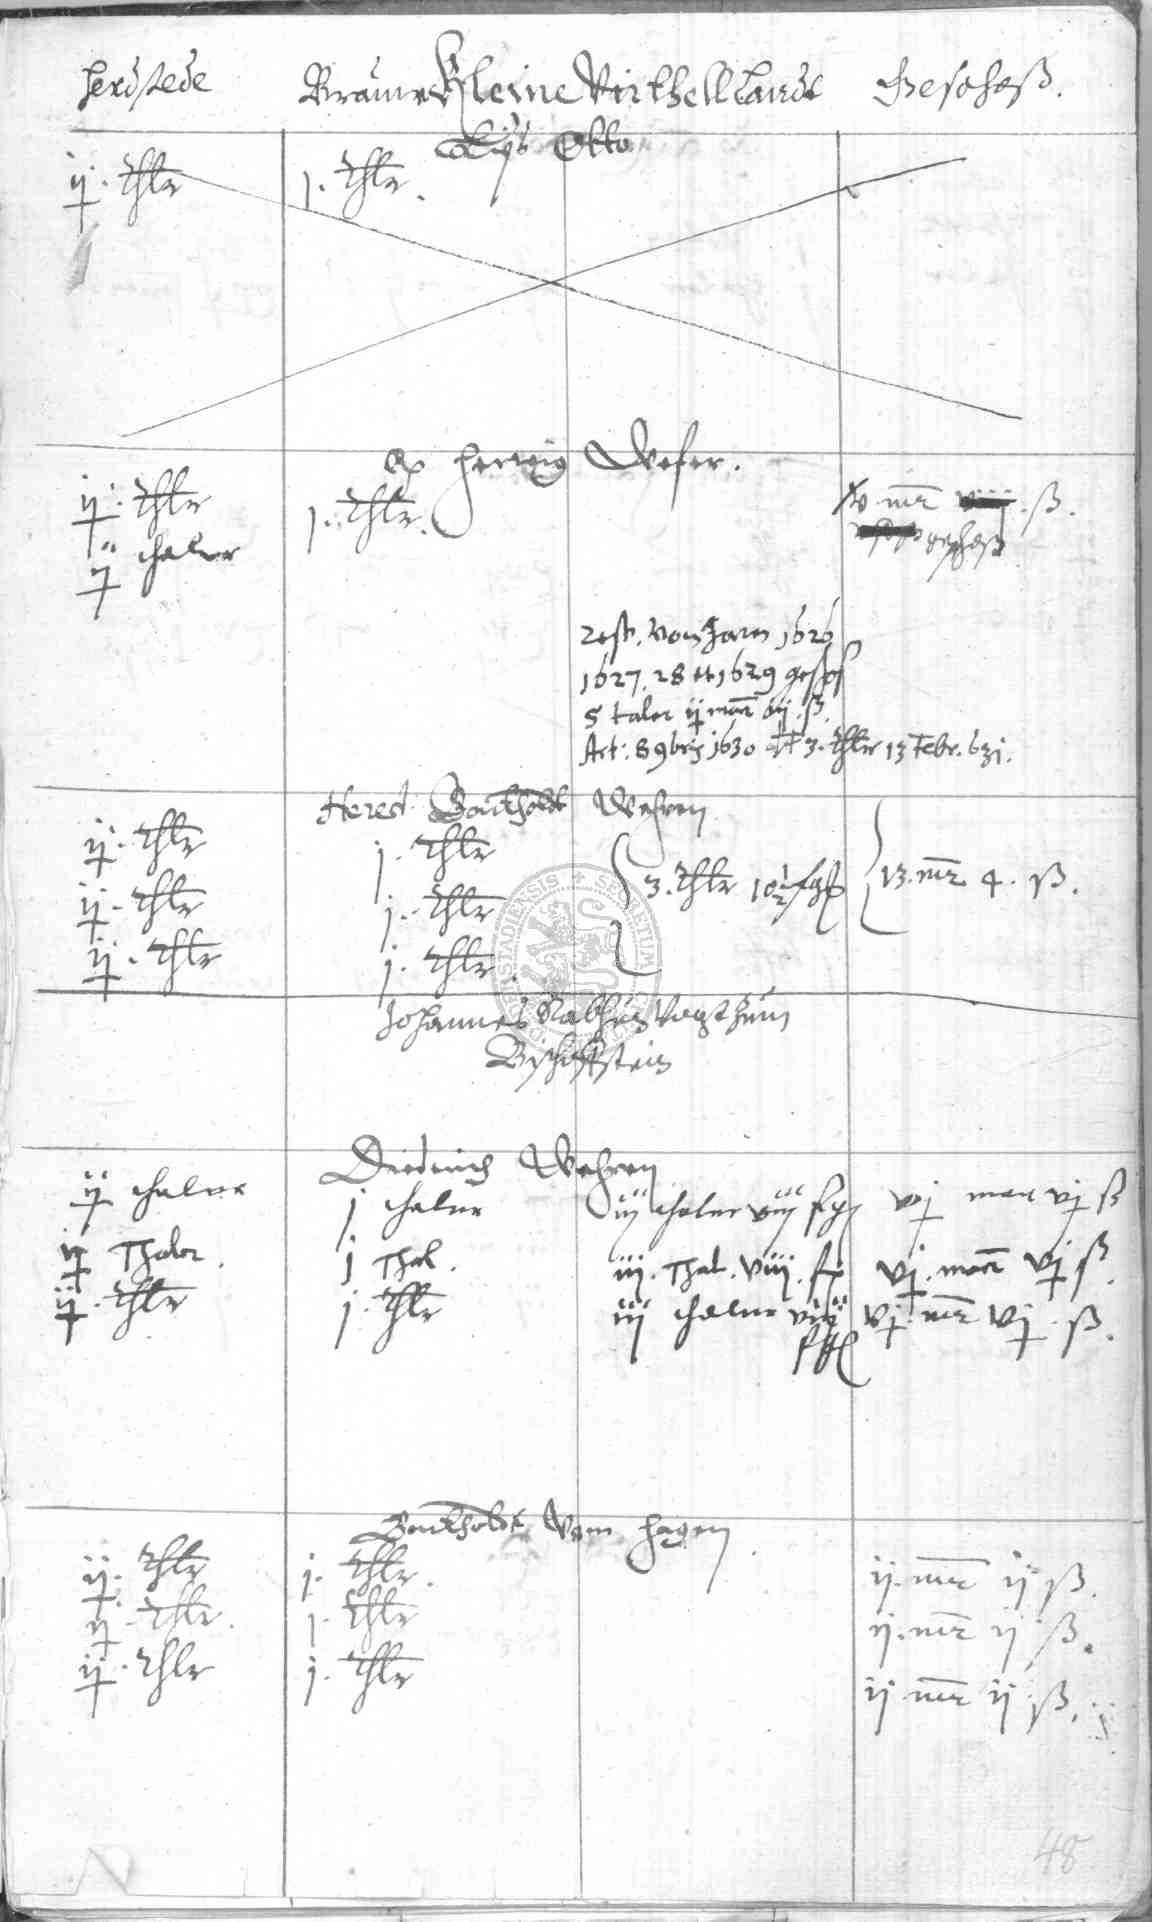 Herdstede Brauwe Kleine Virthell Landt Geschoß.
Otto
ij. thlr j. thlr.
Herwig Weser.
ij. thlr j. thlr. mr ß.
ij thaler geschoß
Rest. von Jaren 1626
1627. 28 et 1629 geschoß
5 taler ij marr ß.
Act: 8 9bris 1630 3. thlr 13 Febr. 631.
Hered. Borkholdt Wehren
ij. thlr j. thlr 3. thlr 10½ fgß 13. mr 4. ß.
ij. thlr j. thlr
ij. thlr j. thlr.
Johannes Rabhun Vogt zum
Bischoffstein
Diedrich Wehren
ij thaler j thaler iij thaler viij vj marr vj ß
ij Thaler. j Thal. iij. Thal. viij. vj. marr vj ß.
ij. thlr j. thlr iij thaler viij vj. mr vj. ß.
Borkholdt Vom Hagen
ij. thlr j. thlr. ij. mr ij ß.
ij. thlr. j. thlr ij. mr ij ß.
ij. thlr j. thlr ij mr ij ß.
48